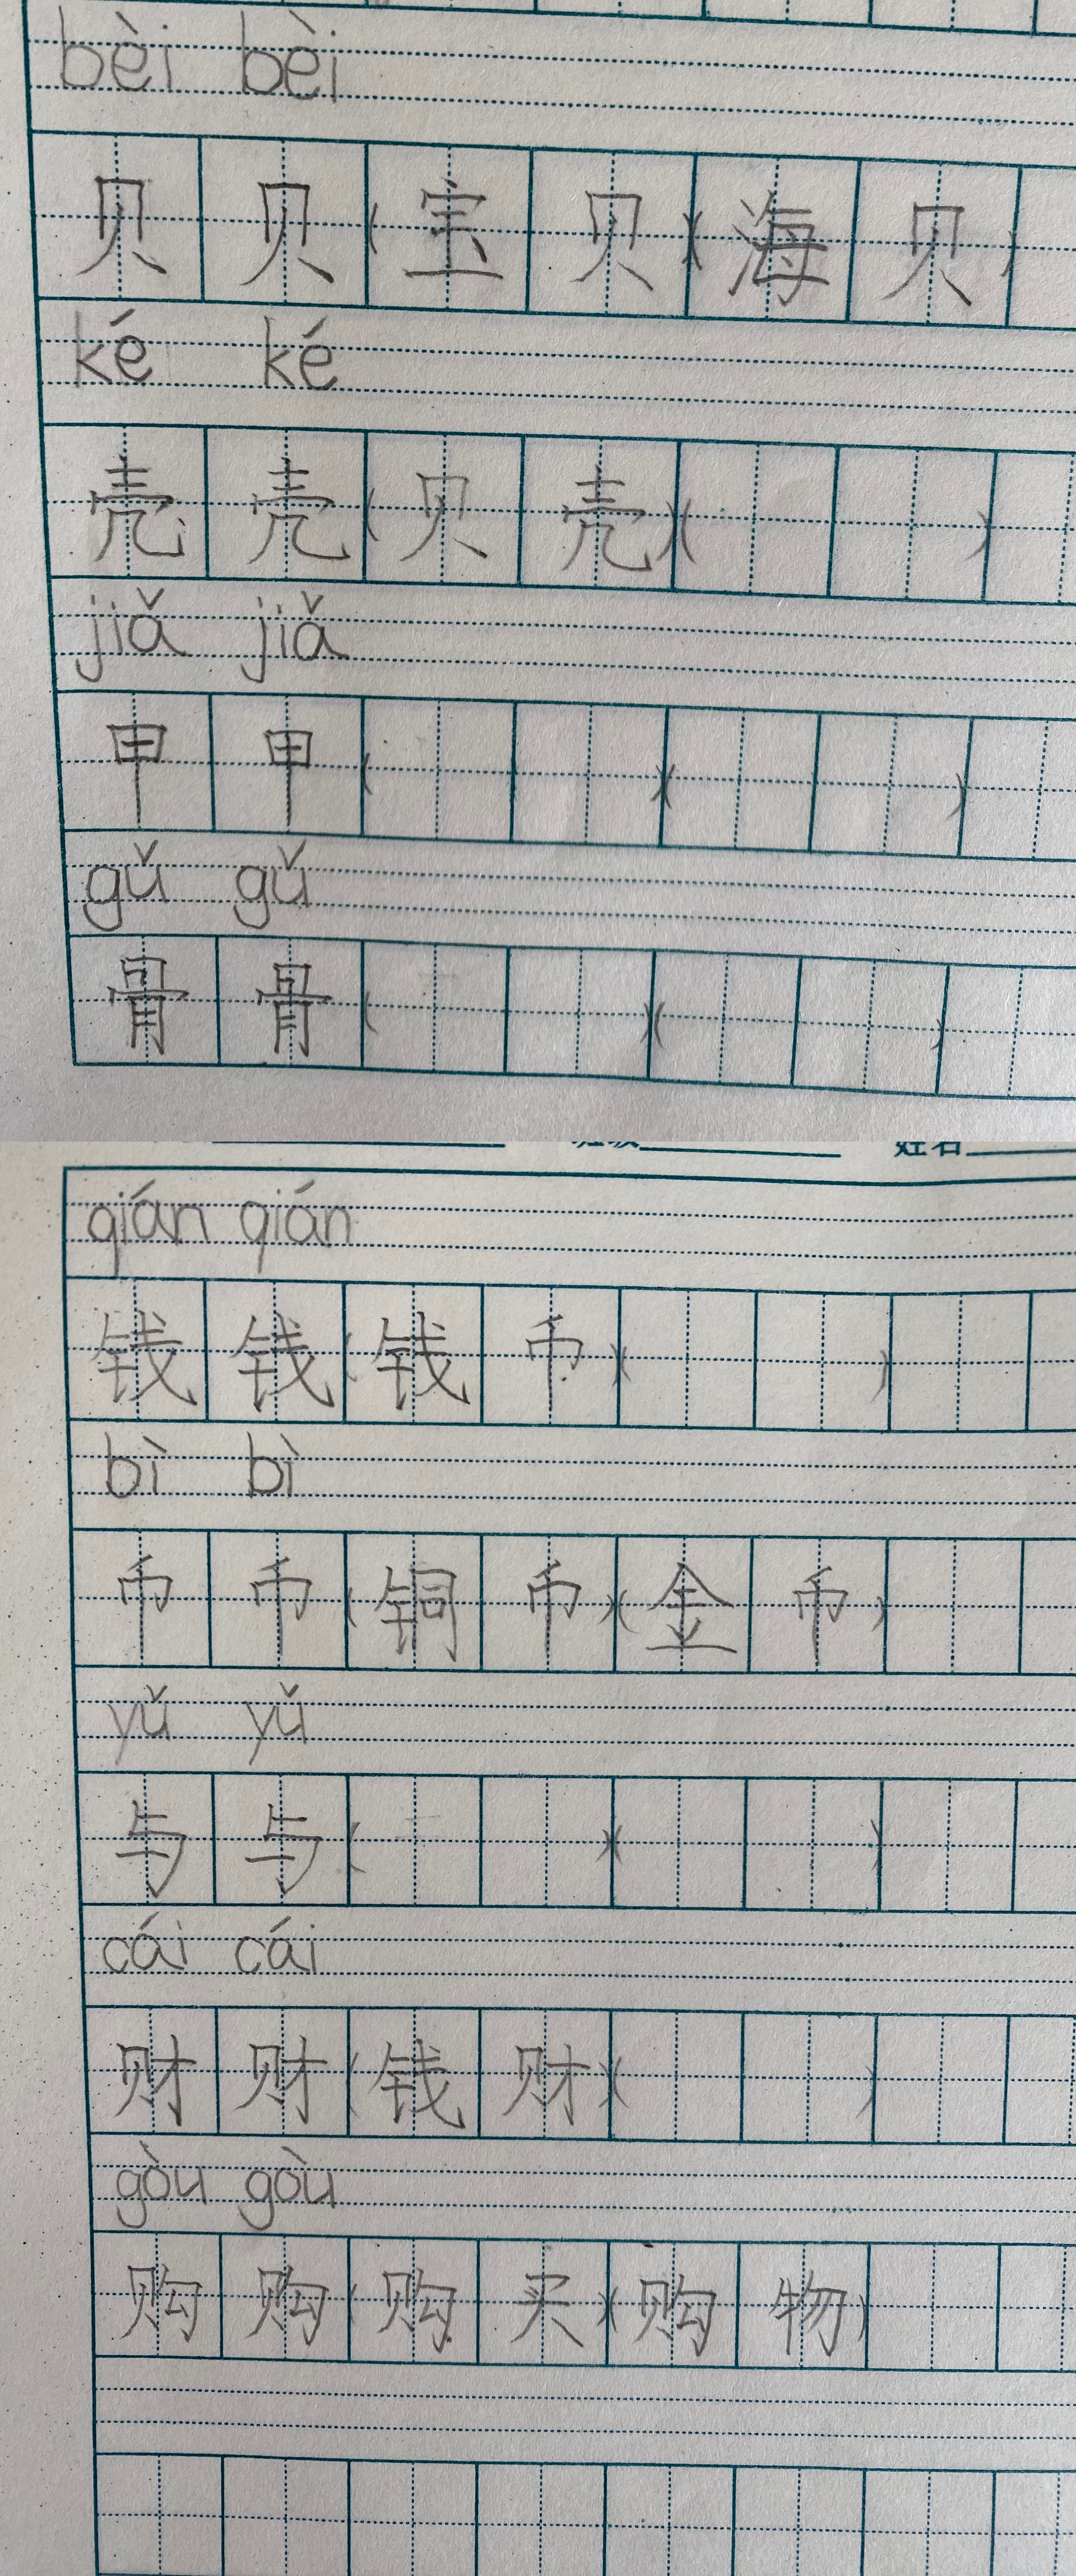 bèi bèi
贝 贝 (宝 贝)(海 贝)
ké ké
壳 壳 (贝 壳)( )
jiǎ jiǎ
甲 甲 ( )( )
gǔ gǔ
骨 骨 ( )( )
姓名
qián qián
钱 钱 (钱 币)( )
bì bì
币 币 (铜 币)(金 币)
yǔ yǔ
与 与 ( )( )
cái cái
财 财 (钱 财)( )
gòu gòu
购 购 (购 买)(购 物)